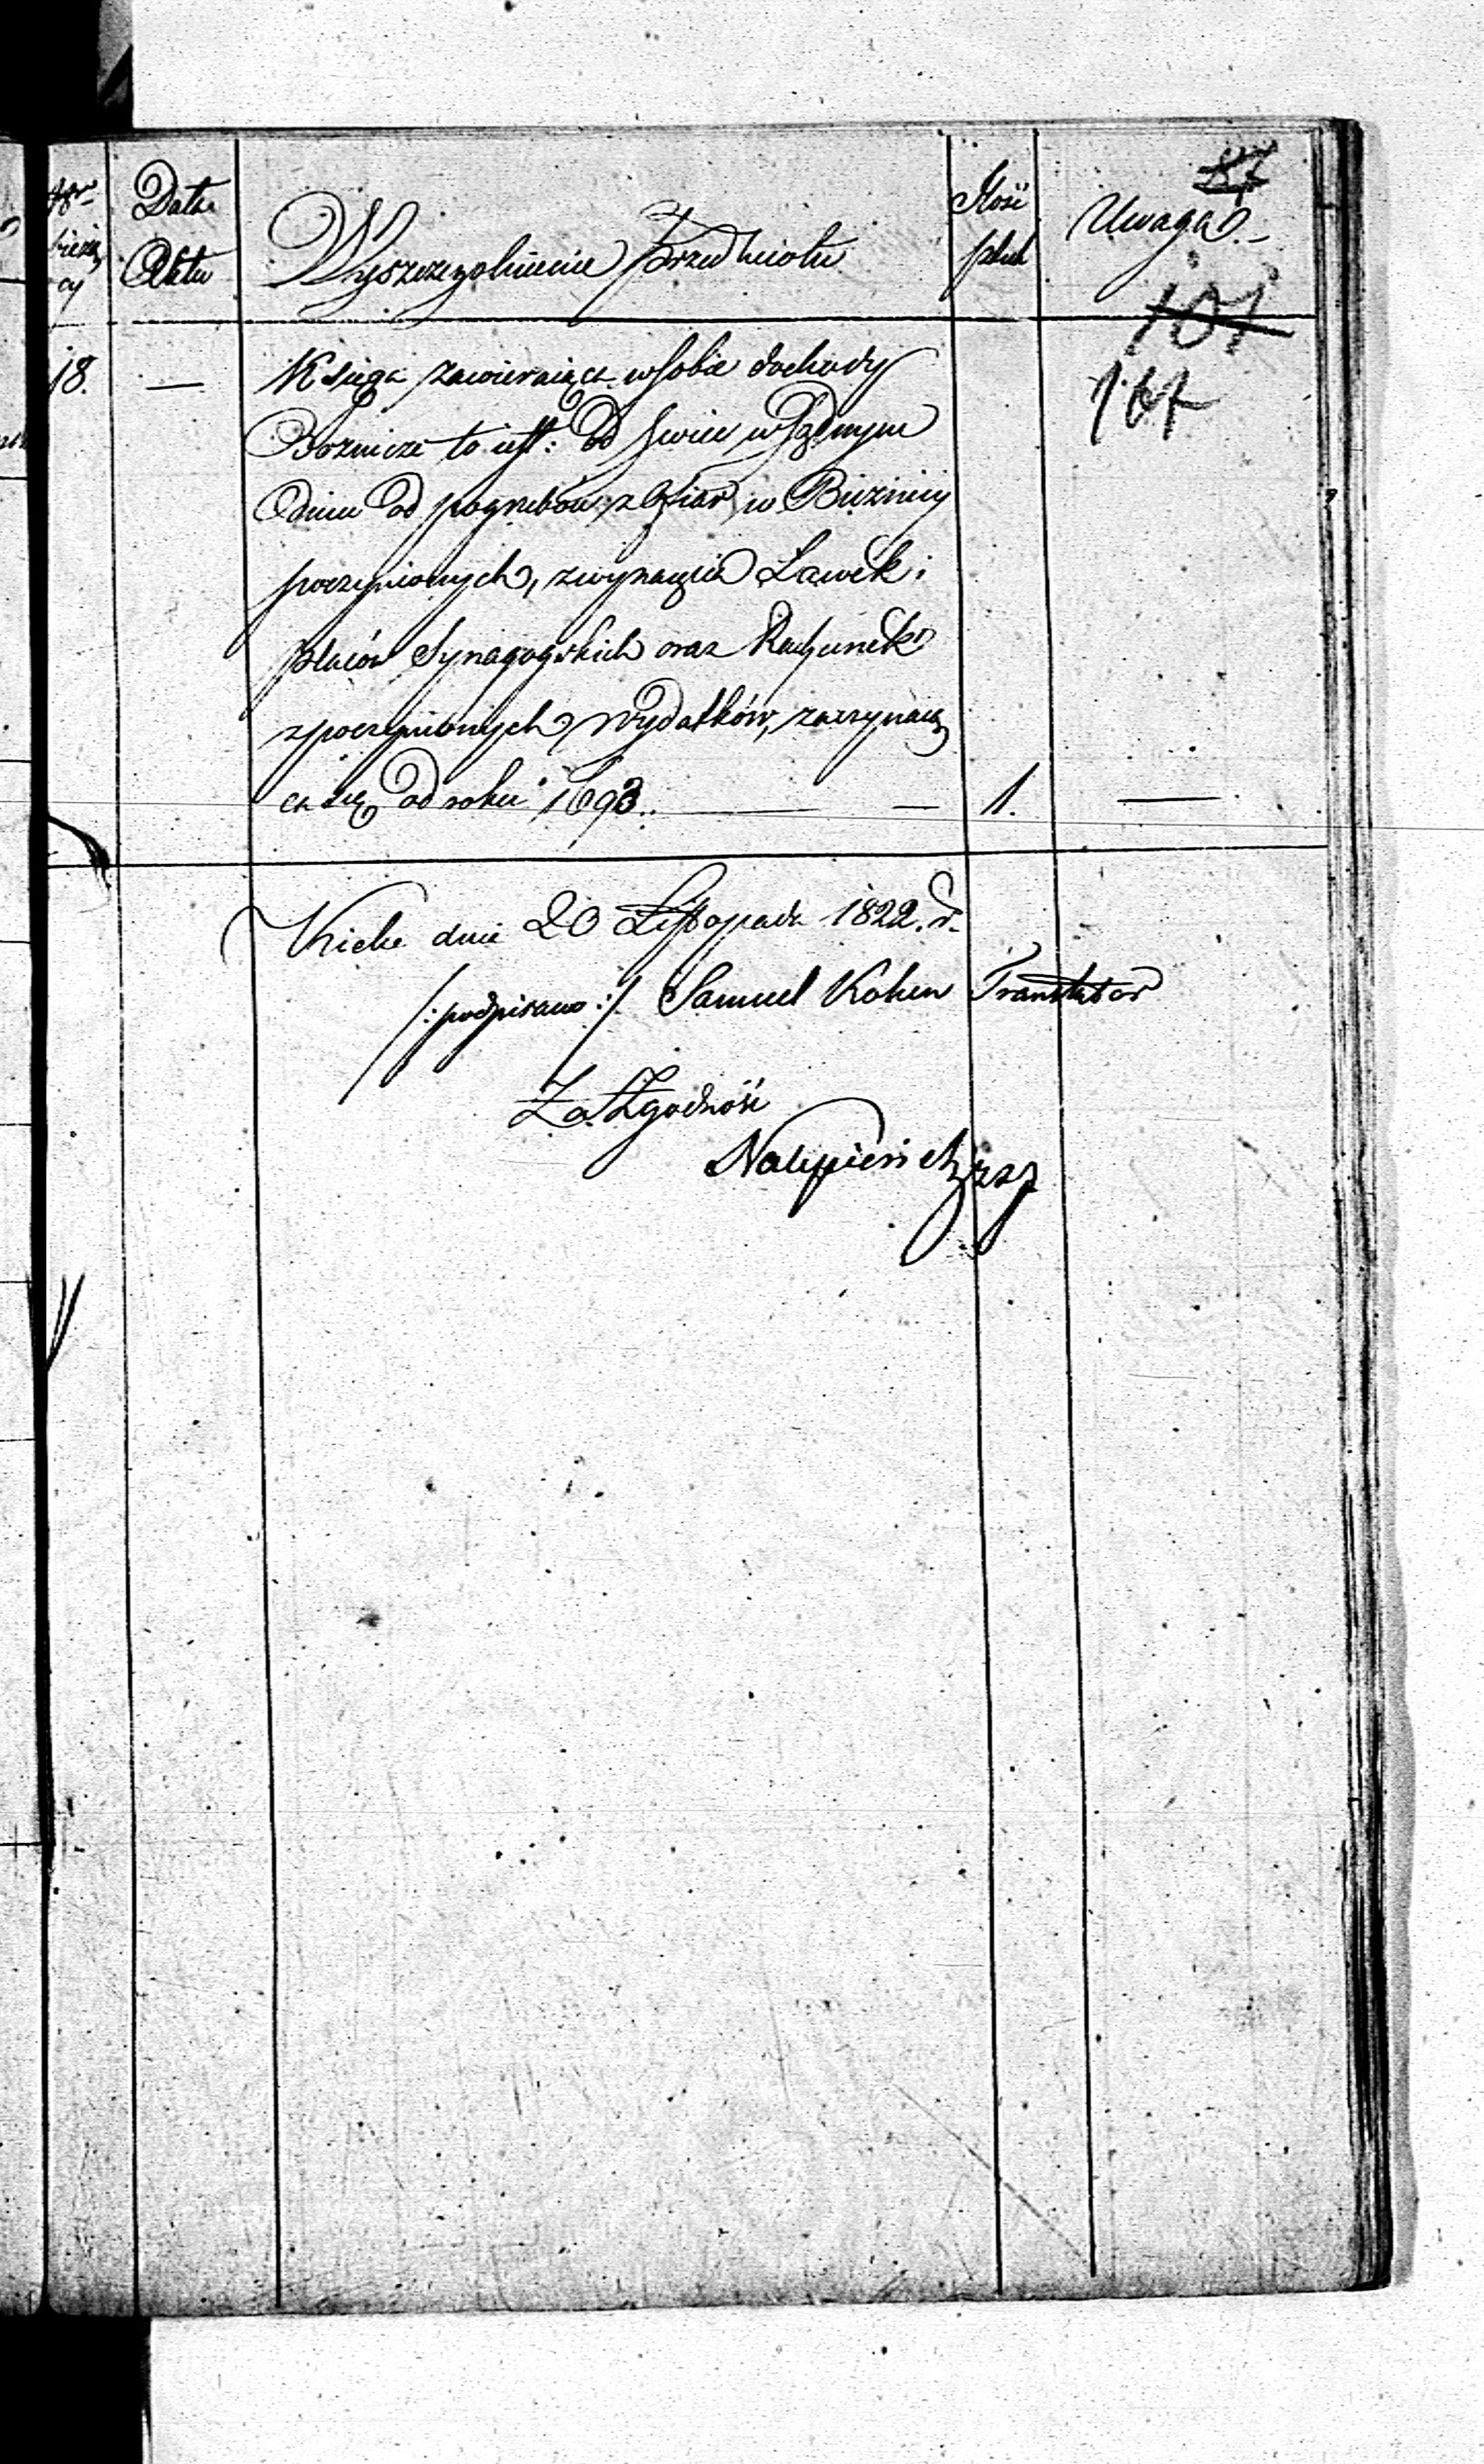 87
Nr bieżą cy
Data Aktu
Wyszczególnienie Przedmiotu
Ilość sztuk
Uwaga.
101
107
18. — Księga zawieraiąca w sobie dochody
Boznicze to iest: Od swiec w Sądnym
Dniu od pogrzebów z Ofiar w Bużnicy
poczynionych, z wynaięcia Ławek i
placów Synagogskich oraz Rachunek
z poczynionych wydatków, zaczynaią
ca się od roku 1693. — 1. —
Kielce dnia 20 Listopada 1822. r.
/: podpisano :/ Samuel Kohen Translator
Za Zgodność